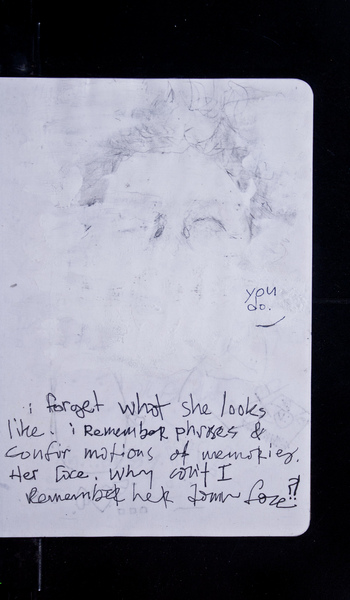 you
do.
i forget what she looks
like. i Remember phrases &
motions of memories.
Her face. Why can't I
Remember her face!?